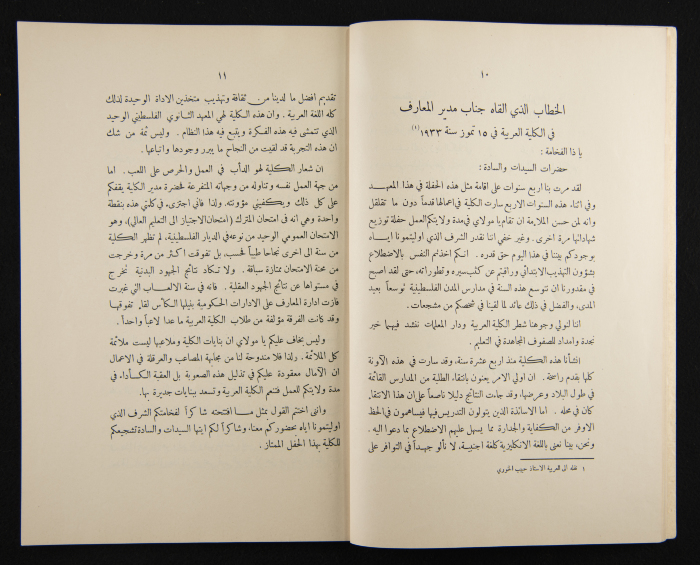 ١٠
الخطاب الذي القاه جناب مدير المعارف
في الكلية العربية في ١٥ تموز سنة ١٩٣٣ (١)
يا ذا الفخامة :
حضرات السيدات والسادة :
لقد مرت بنا اربع سنوات على اقامة مثل هذه الحفلة في هذا المعهـد
وفي اثناء هذه السنوات الاربع سارت الكلية في اعمالها قدماً دون ما تقلقل
وانه لمن حسن الملازمة ان تقام يا مولاي في مدة ولايتكم العمل حفلة توزيع
شهاداتها مرة اخرى. وغير خفي اننا نقدر الشرف الذي اوليتمونا ايـاه
بوجودكم بيننا في هذا اليوم حق قدره . انـكم اخذتم النفس بالاضطلاع
بشؤون التهذيب الابتدائي وراقبتم عن كثب سيره وتطوراته، حتى لقد اصبح
في مقدورنا ان نتوسع هذه السنة في مدارس المدن الفلسطينية توسعاً بعيد
المدى، والفضل في ذلك عائد لما لقينا في شخصكم من مشجعات .
اننا لنولي وجوهنا شطر الكلية العربية ودار المعلمات ننشد فيهما خير
نجدة وامداد للصفوف المجاهدة في التعليم .
انشأنا هذه الكلية منذ اربع عشرة سنة، وقد سارت في هذه الآونة
كلها بقدم راسخة . ان اولي الامر يعنون بانتقاء الطلبة من المدارس القائمة
في طول البلاد وعرضها، وقد جاءت النتائج دليلا ناصعاً على ان هذا الانتقاء
كان في محله . اما الاساتذة الذين يتولون التدريس فيها فيساهمون في الحظ
الاوفر من الكفاية والجدارة مما يسهل عليهم الاضطلاع بما دعوا اليه .
ونحن، بينا نعنى باللغة الانكليزية كلغة اجنبيـة، لا نألو جهداً في التوافر على
١ نقله الى العربية الاستاذ حبيب الخوري
١١
تقديم افضل ما لدينا من ثقافة وتهذيب متخذين الاداة الوحيدة لذلك
كله اللغة العربية . وان هذه الكلية لهي المعهد الثانوي الفلسطيني الوحيد
الذي تتمشى فيه هذه الفكرة ويتبع فيه هذا النظام . وليس ثمة من شك
ان هذه التجربة قد لقيت من النجاح ما يبرر وجودها واتباعها .
ان شعار الكلية لهو الدأب في العمل والحرص على اللعب . اما
من جهة العمل نفسه وتناوله من وجهاته المتفرعة فحضرة مدير الكلية يقفكم
على كل ذلك ويكفيني مؤونته. ولذا فاني اجتزىء في كلمتي هذه بنقطة
واحدة وهي انه في امتحان المترك (امتحان الاجتياز الى التعليم العالي)، وهو
الامتحان العمومي الوحيد من نوعه في الديار الفلسطينية، لم تظهر الكلية
من سنة الى اخرى نجاحا طيباً فحسب، بل تفوقت اكثر من مرة وخرجت
من محنة الامتحان ممتازة سباقة . ولا تـكاد نتائج الجهود البدنية تخرج
في مستواها عن نتائج الجهود العقلية . فانه في سنة الالعـاب التي غبرت
فازت ادارة المعارف على الادارات الحكومية بنيلها الكأس لقاء تفوقها
وقد كانت الفرقة مؤلفة من طلاب الكلية العربية ما عدا لاعباً واحداً .
وليس بخاف عليكم يا مولاي ان بنايات الكلية وملاعبها ليست ملائمة
كل الملائمة . ولذا فلا مندوحة لنا من مجابهة المصاعب والعرقلة في الاعمال
ان الآمال معقودة عليكم في تذليل هذه الصعوبة بل العقبة الكأداء، في
مدة ولايتكم للعمل فتنعم الكلية العربية وتسعد ببنايات جديرة بها .
وانى اختتم القول بمثل مـا افتتحته شاكراً لفخامتكم الشرف الذي
اوليتمونا اياه بحضوركم معنا، وشاكراً لكم ايتها السيدات والسادة تشجيعكم
للكلية بهذا الحفل الممتاز .